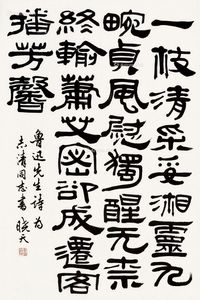 一枝清采妥湘靈九
畹貞風慰獨醒无柰
終輸蕭艾密卻成遷客
播芳馨
魯迅先生詩为
清同志書 晓天